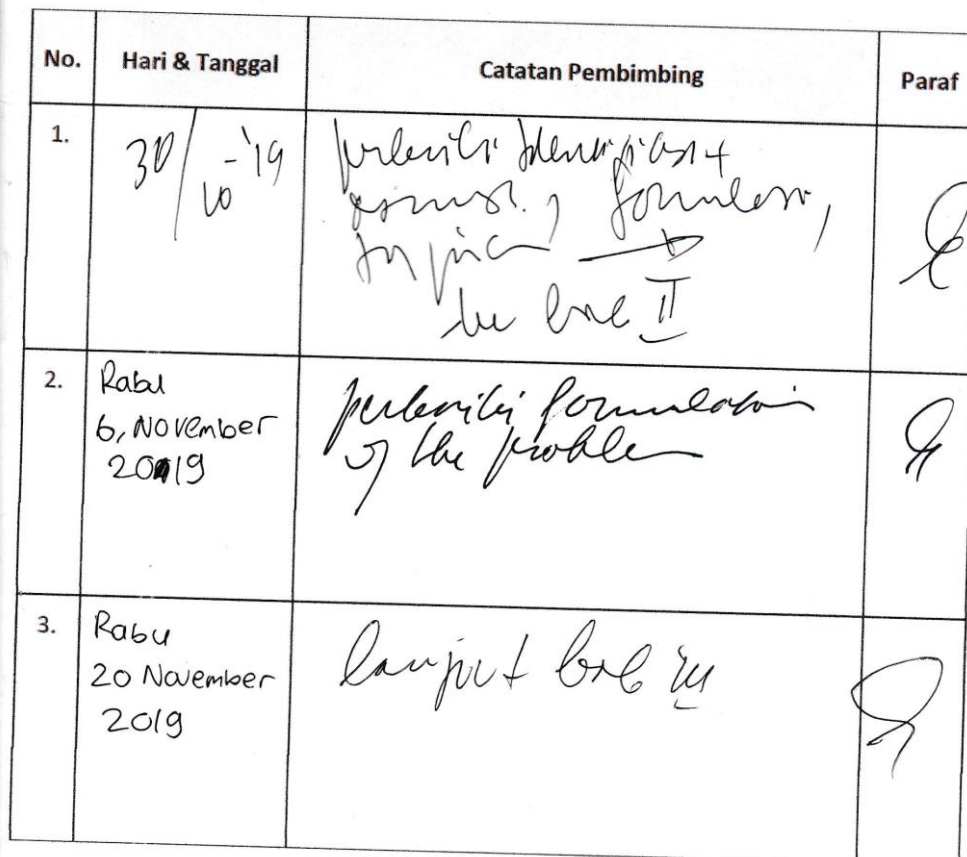 No. Hari & Tanggal Catatan Pembimbing Paraf
1. 30/10-'19 perbaiki
formulasi,
ke bab II
2. Rabu
6, November
2019
perbaiki formulation
of the problem
3. Rabu
20 November
2019
lanjut bab III